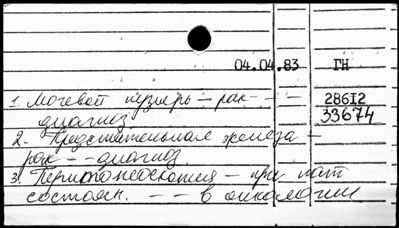 04.04.83 ГН
1. Мочевой пузырь - рак - - -
диагноз
28612
33674
2. Предстательная железа -
рак - - диагноз.
3. Термография - при пат
состоян. - - - в онкологии